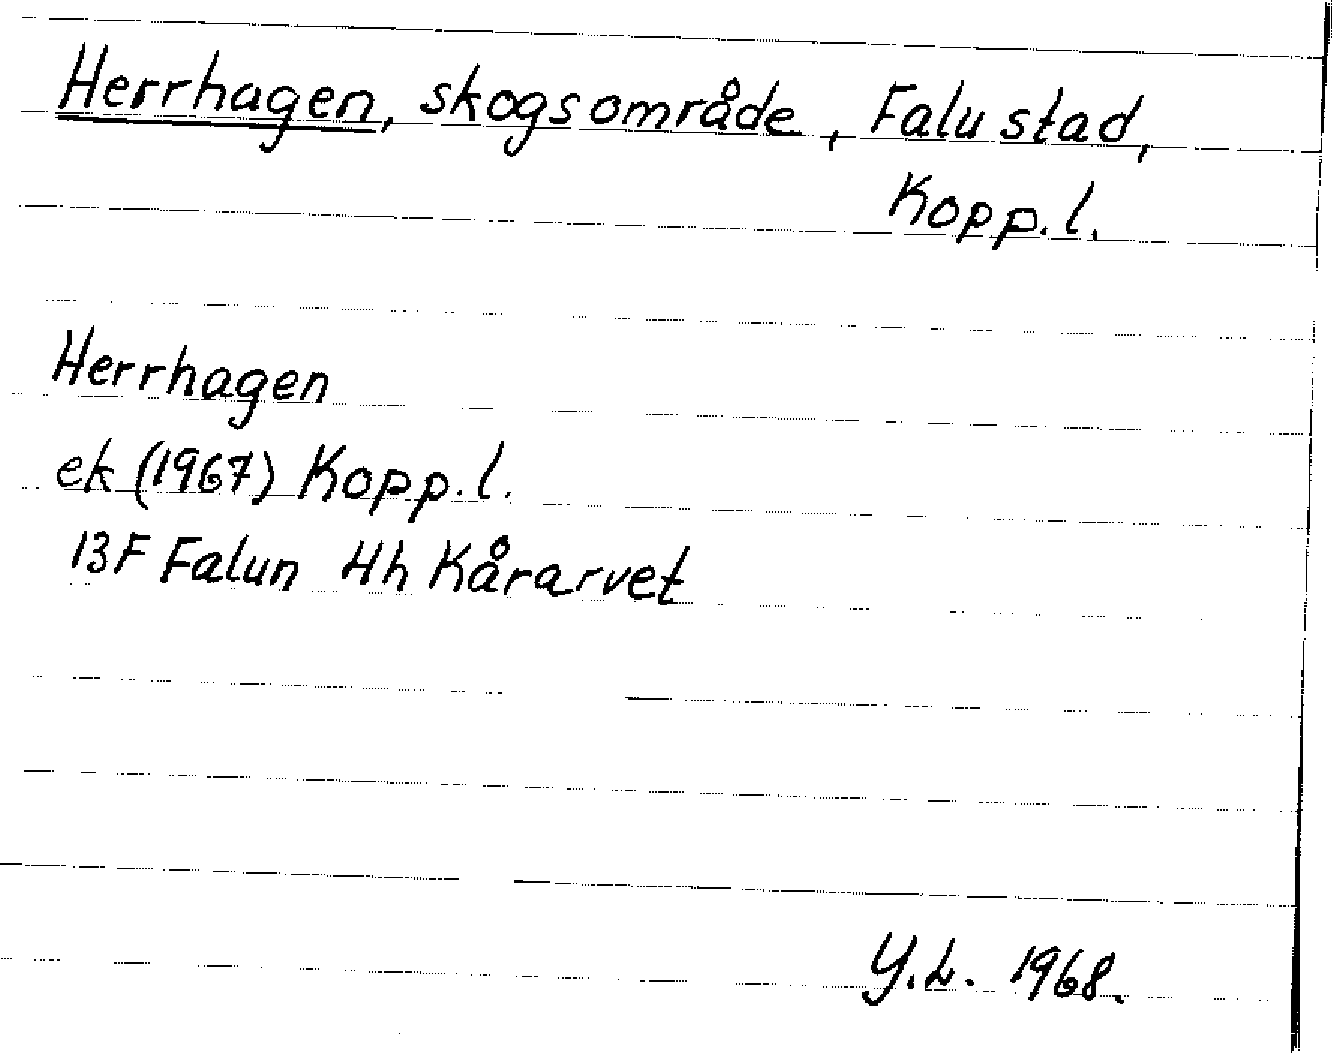 Herrhagen, skogsområde, Falu stad,
Kopp.l.
Herrhagen
ek (1967) Kopp.l.
13F Falun Hh Kårarvet
Y.L. 1968.